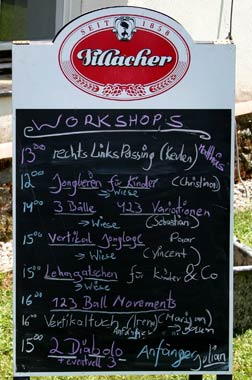 SEIT 1858
Villacher
WORKSHOPS
13⁰⁰ rechts Links Passing (Kevlen)
12⁰⁰ Jonglieren für Kinder (Christina)
→ Wiese
14⁰⁰ 3 Bälle 423 Variationen
→ Wiese (Sebastian)
15⁰⁰ Vertikal Jonglage Paar
→ Wiese (Vincent)
15⁰⁰ Lehmgatschen für Kinder & Co
→ Wiese
16⁰⁰ 123 Ball Movements
16⁰⁰ Vertikaltuch (Irene) (Marijan)
Anfänger
15⁰⁰ 2 Diabolo Anfänger Julian
+ eventuell 3